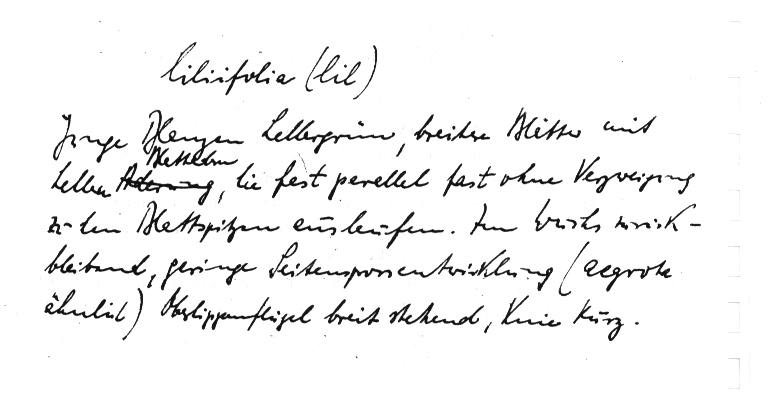 liliifolia (lil)
Junge Pflanzen hellergrün, breitere Blätter mit
hellen Blattadern, die fast parallel fast ohne Verzweigung
zu den Blattspitzen auslaufen. Im Wuchs zurück-
bleibend, geringe Seitensprossentwicklung (aegrota
ähnlich) Oberlippenflügel breit stehend, Knie kurz.